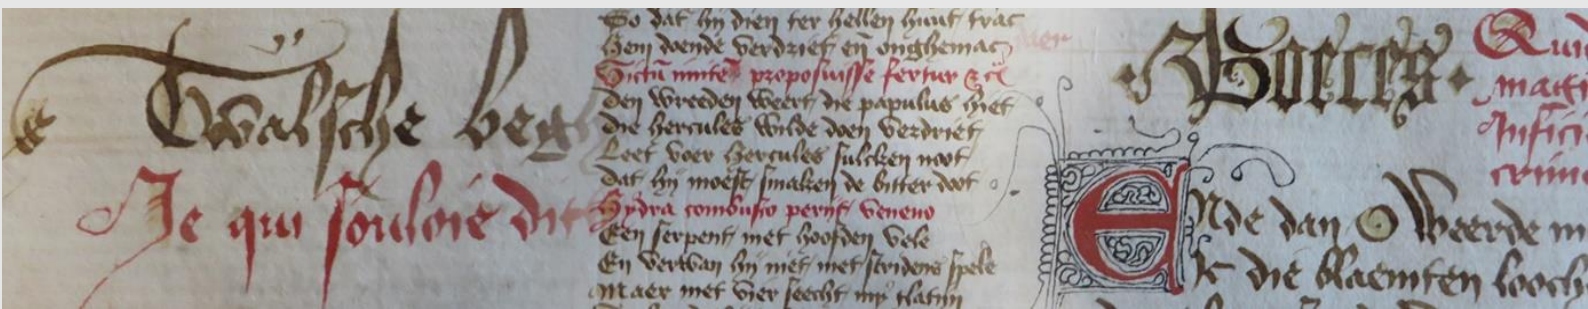 Twalsche beg
Je qui souloie dit
So dat hy dien ter hellen huut trac
Hem doende verdriet en onghemac
Victu mite proposuisse fertur
Den wreeden weert die papulus hiet
die hercules wilde doen verdriet
Leet voer hercules sulcken noot
dat hy moest smaken de bitter doot
Hydra combusto perijt veneno
Een serpent met hoofden vele
En verwan hy niet met stridens spele
Maer met vier seecht
Boeces
ENde dan O weerde
Ic die blaemten looch
Quid
magi
Infici
crimi